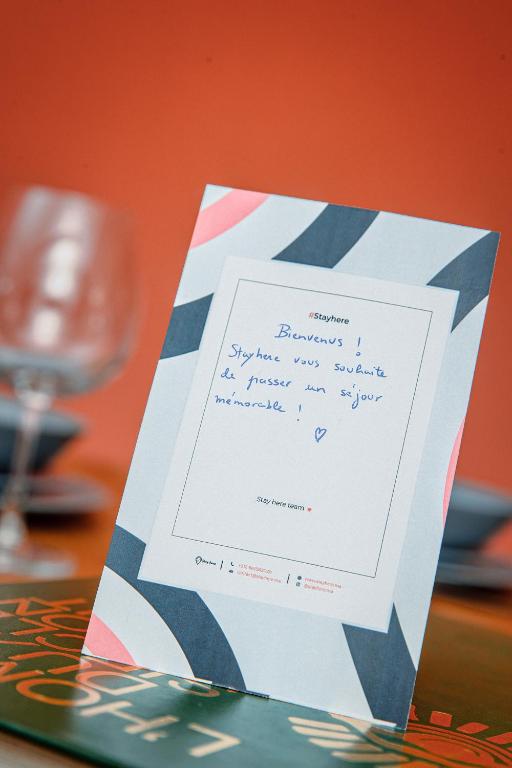 #Stayhere
Bienvenus !
Stayhere vous souhaite
de passer un séjour
mémorable !
Stay here team
L'HOM